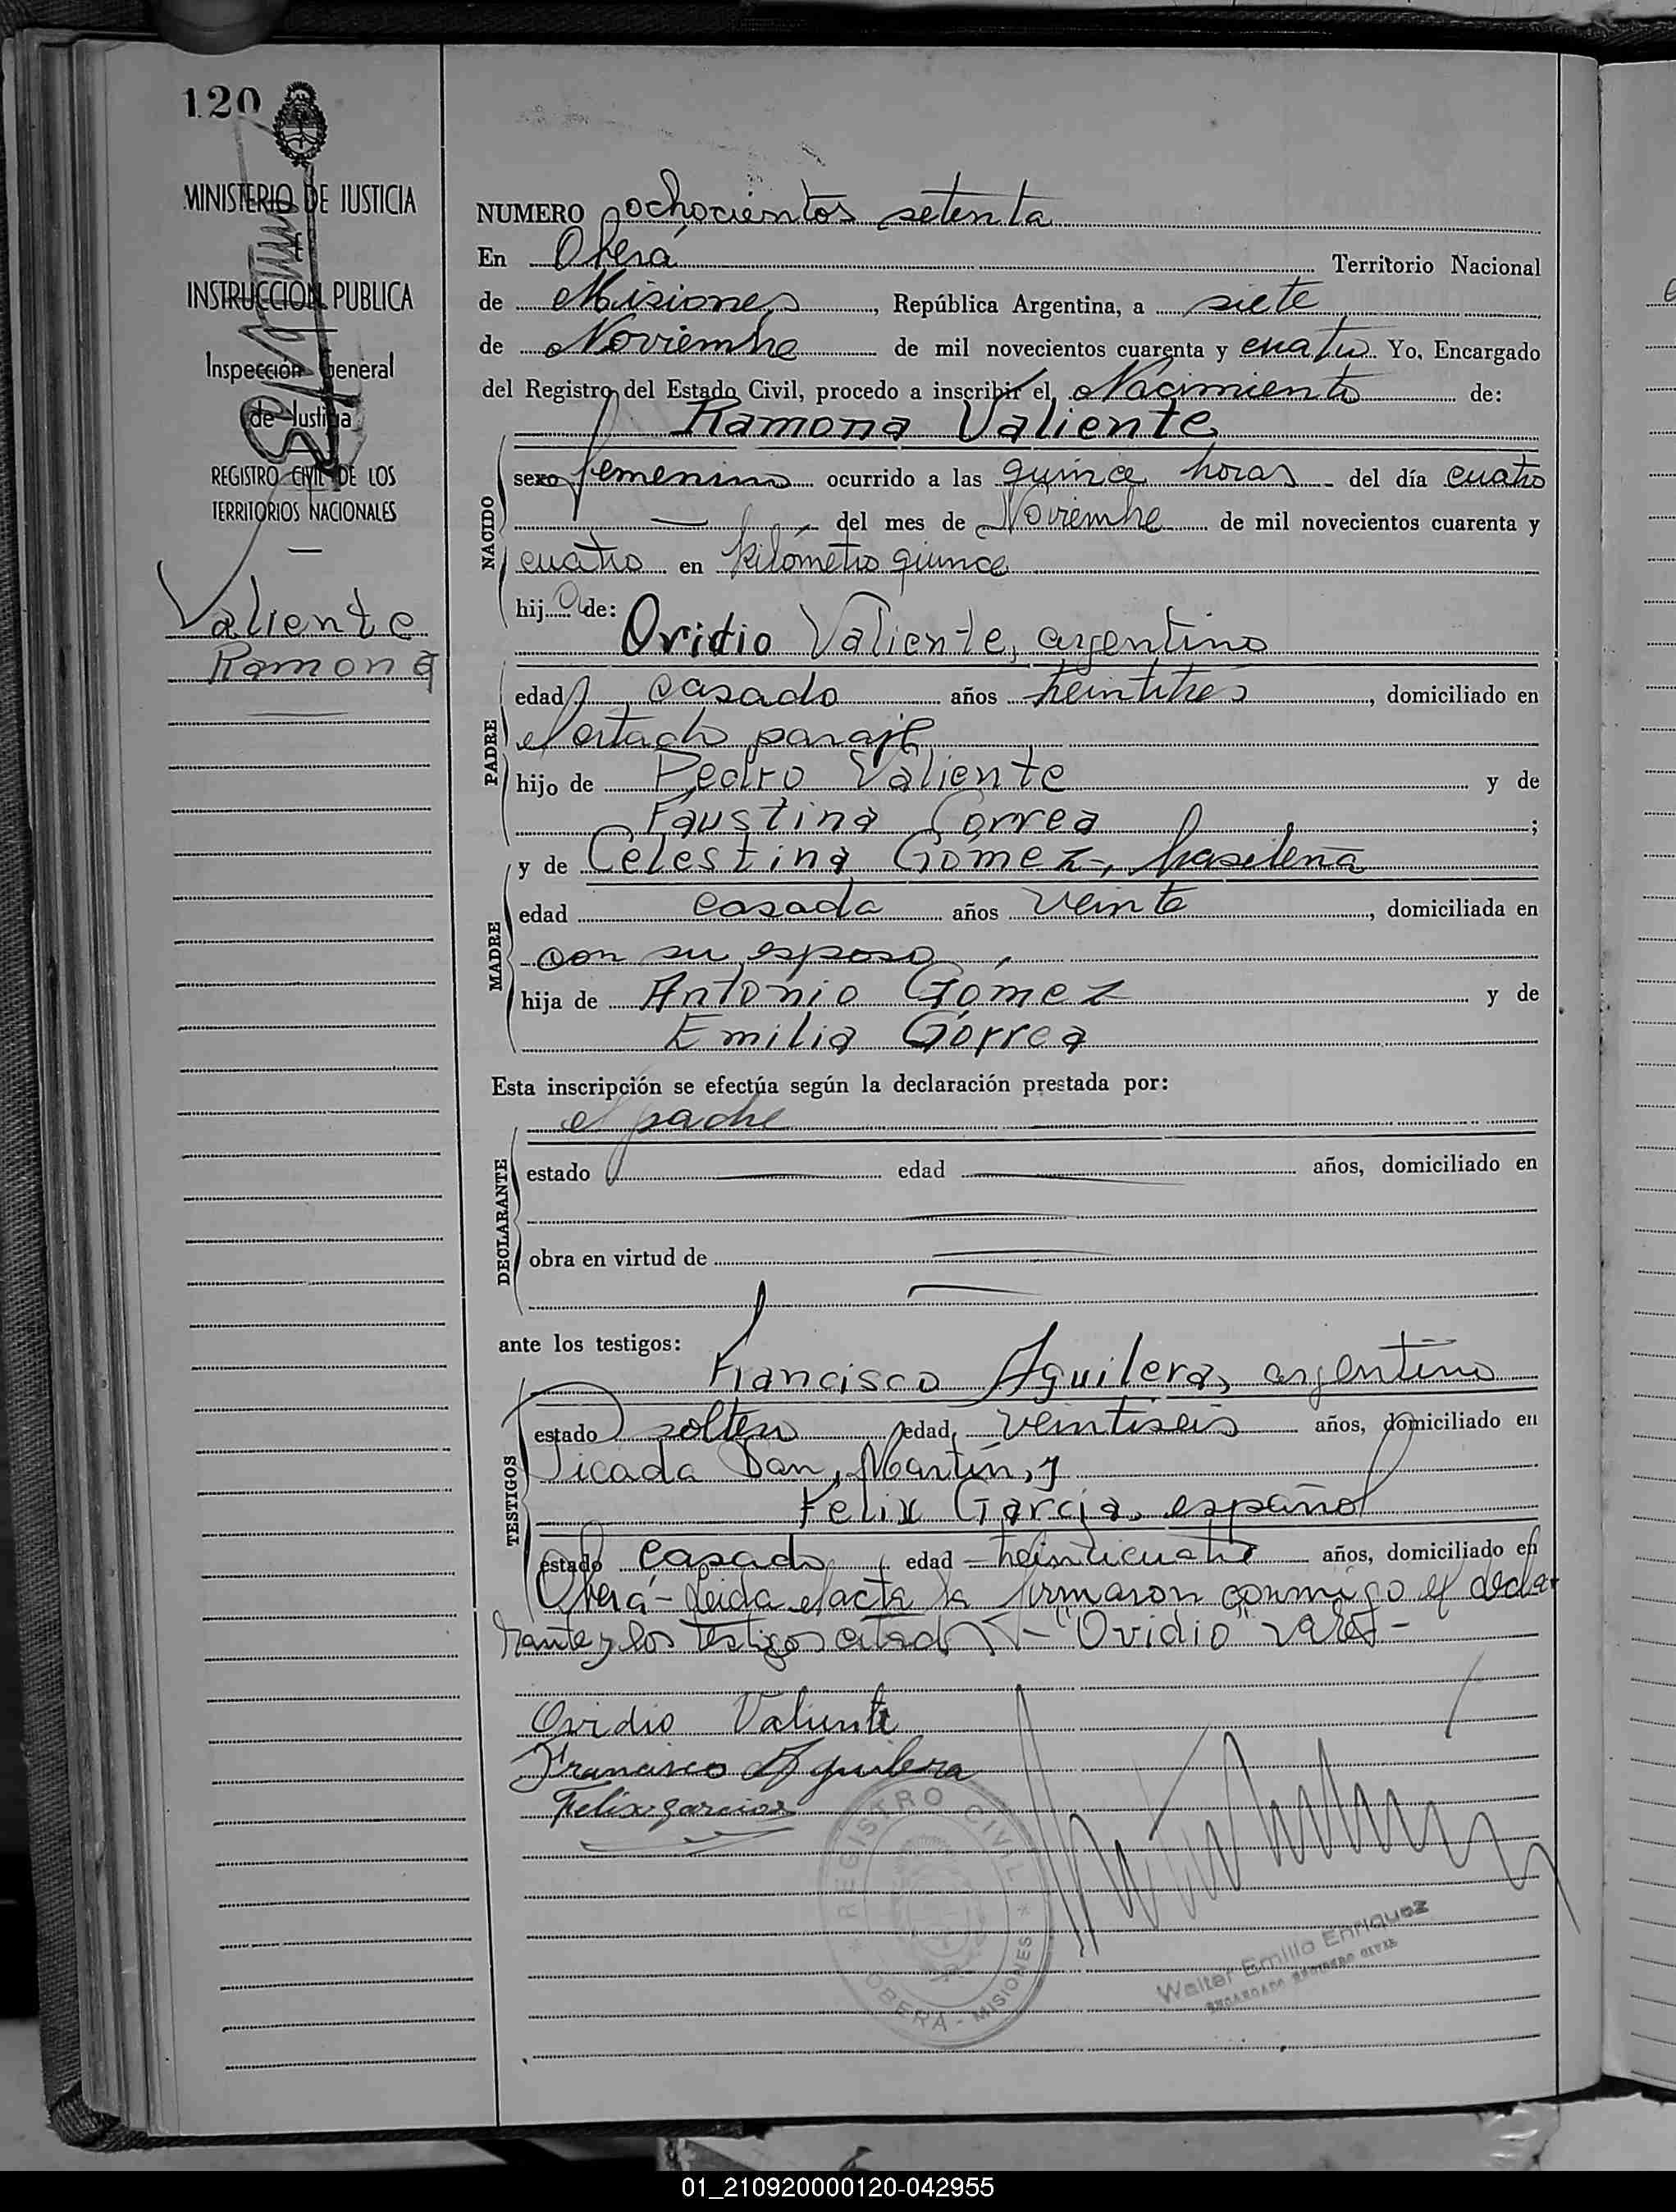 120
MINISTERIO DE JUSTICIA
E
INSTRUCCION PUBLICA
Inspección General
de Justicia
REGISTRO CIVIL DE LOS
TERRITORIOS NACIONALES
Valiente
Ramona
NUMERO ochocientos setenta
En Oberá Territorio Nacional
de Misiones, República Argentina, a siete
de Noviembre de mil novecientos cuarenta y cuatro Yo, Encargado
del Registro del Estado Civil, procedo a inscribir el Nacimiento de:
Ramona Valiente
NACIDO
sexo femenino ocurrido a las quince horas del día cuatro
del mes de Noviembre de mil novecientos cuarenta y
cuatro en kilómetro quince
hija de:
Ovidio Valiente, argentino
PADRE
edad casado años treintitres, domiciliado en
el citado paraje
hijo de Pedro Valiente y de
Faustina Correa ;
MADRE
y de Celestina Gómez, brasileña
edad casada años veinte, domiciliada en
con su esposo,
hija de Antonio Gómez y de
Emilia Górrea
Esta inscripción se efectúa según la declaración prestada por:
el padre
DECLARANTE
estado edad años, domiciliado en
obra en virtud de
ante los testigos:
Francisco Aguilera, argentino
TESTIGOS
estado soltero edad veintiseis años, domiciliado en
Picada San Martín, y
Felix García, español
estado casado edad treinticuatro años, domiciliado en
Oberá - Leida el acta la firmaron conmigo el decla-
rante y los testigos citados - "Ovidio" vale -
Ovidio Valiente
Francisco Aguilera
Felix garcia
REGISTRO CIVIL
OBERÁ - MISIONES
Walter Emilio Enriquez
ENCARGADO REGISTRO CIVIL
01_210920000120-042955